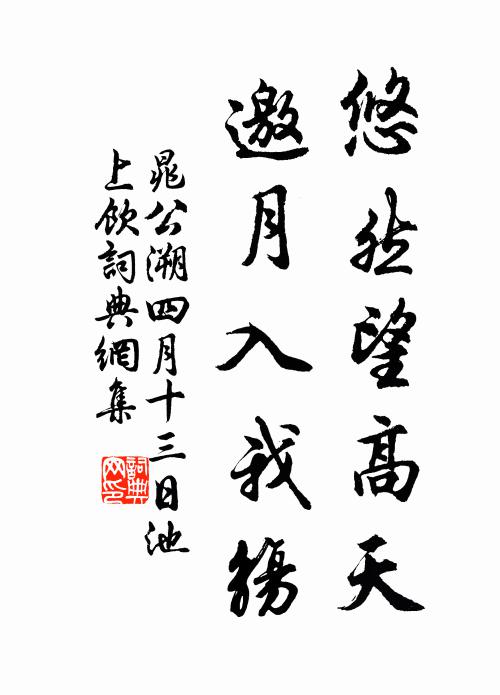 悠然望高天
邀月入我觴
晁公溯四月十三日池
上飲詞典網集
詞典
网印